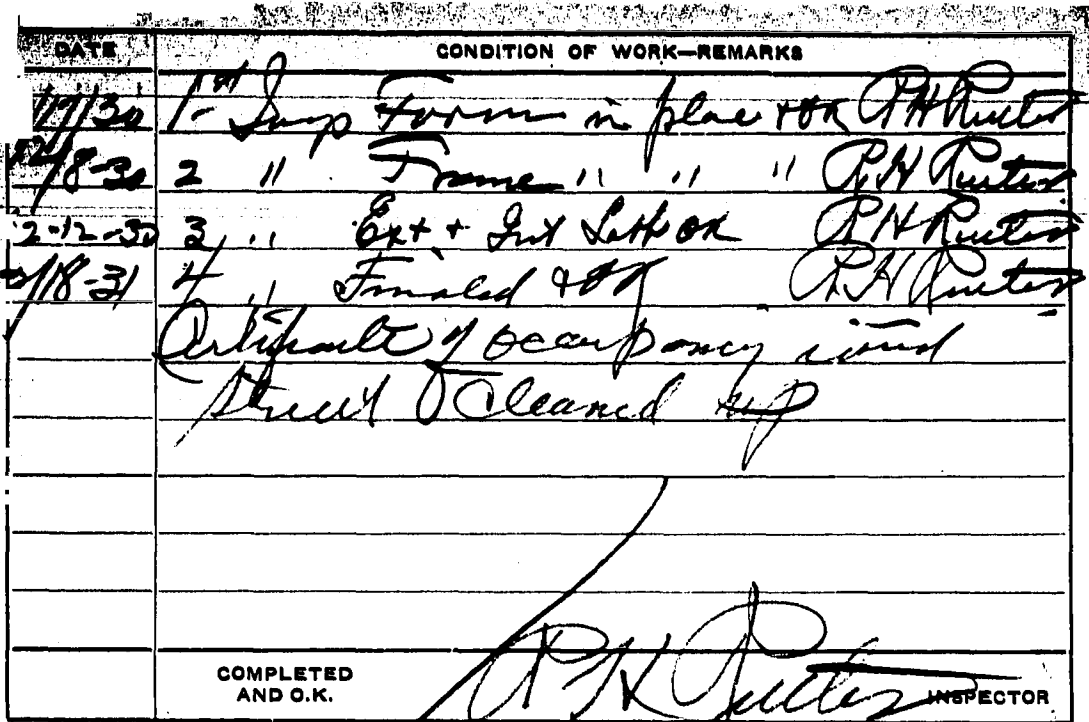 DATE CONDITION OF WORK—REMARKS
1st Insp Form in place + OK R H Ruiter
12/8-30 2 " Frame " " " R. H Ruiter
12-12-30 3 " Ext + Int Lath OK R H Ruiter
18-31 4 " Finaled + OK R. H Ruiter
Certificate of occupancy issued
street Cleaned up
COMPLETED AND O.K. R H Ruiter INSPECTOR